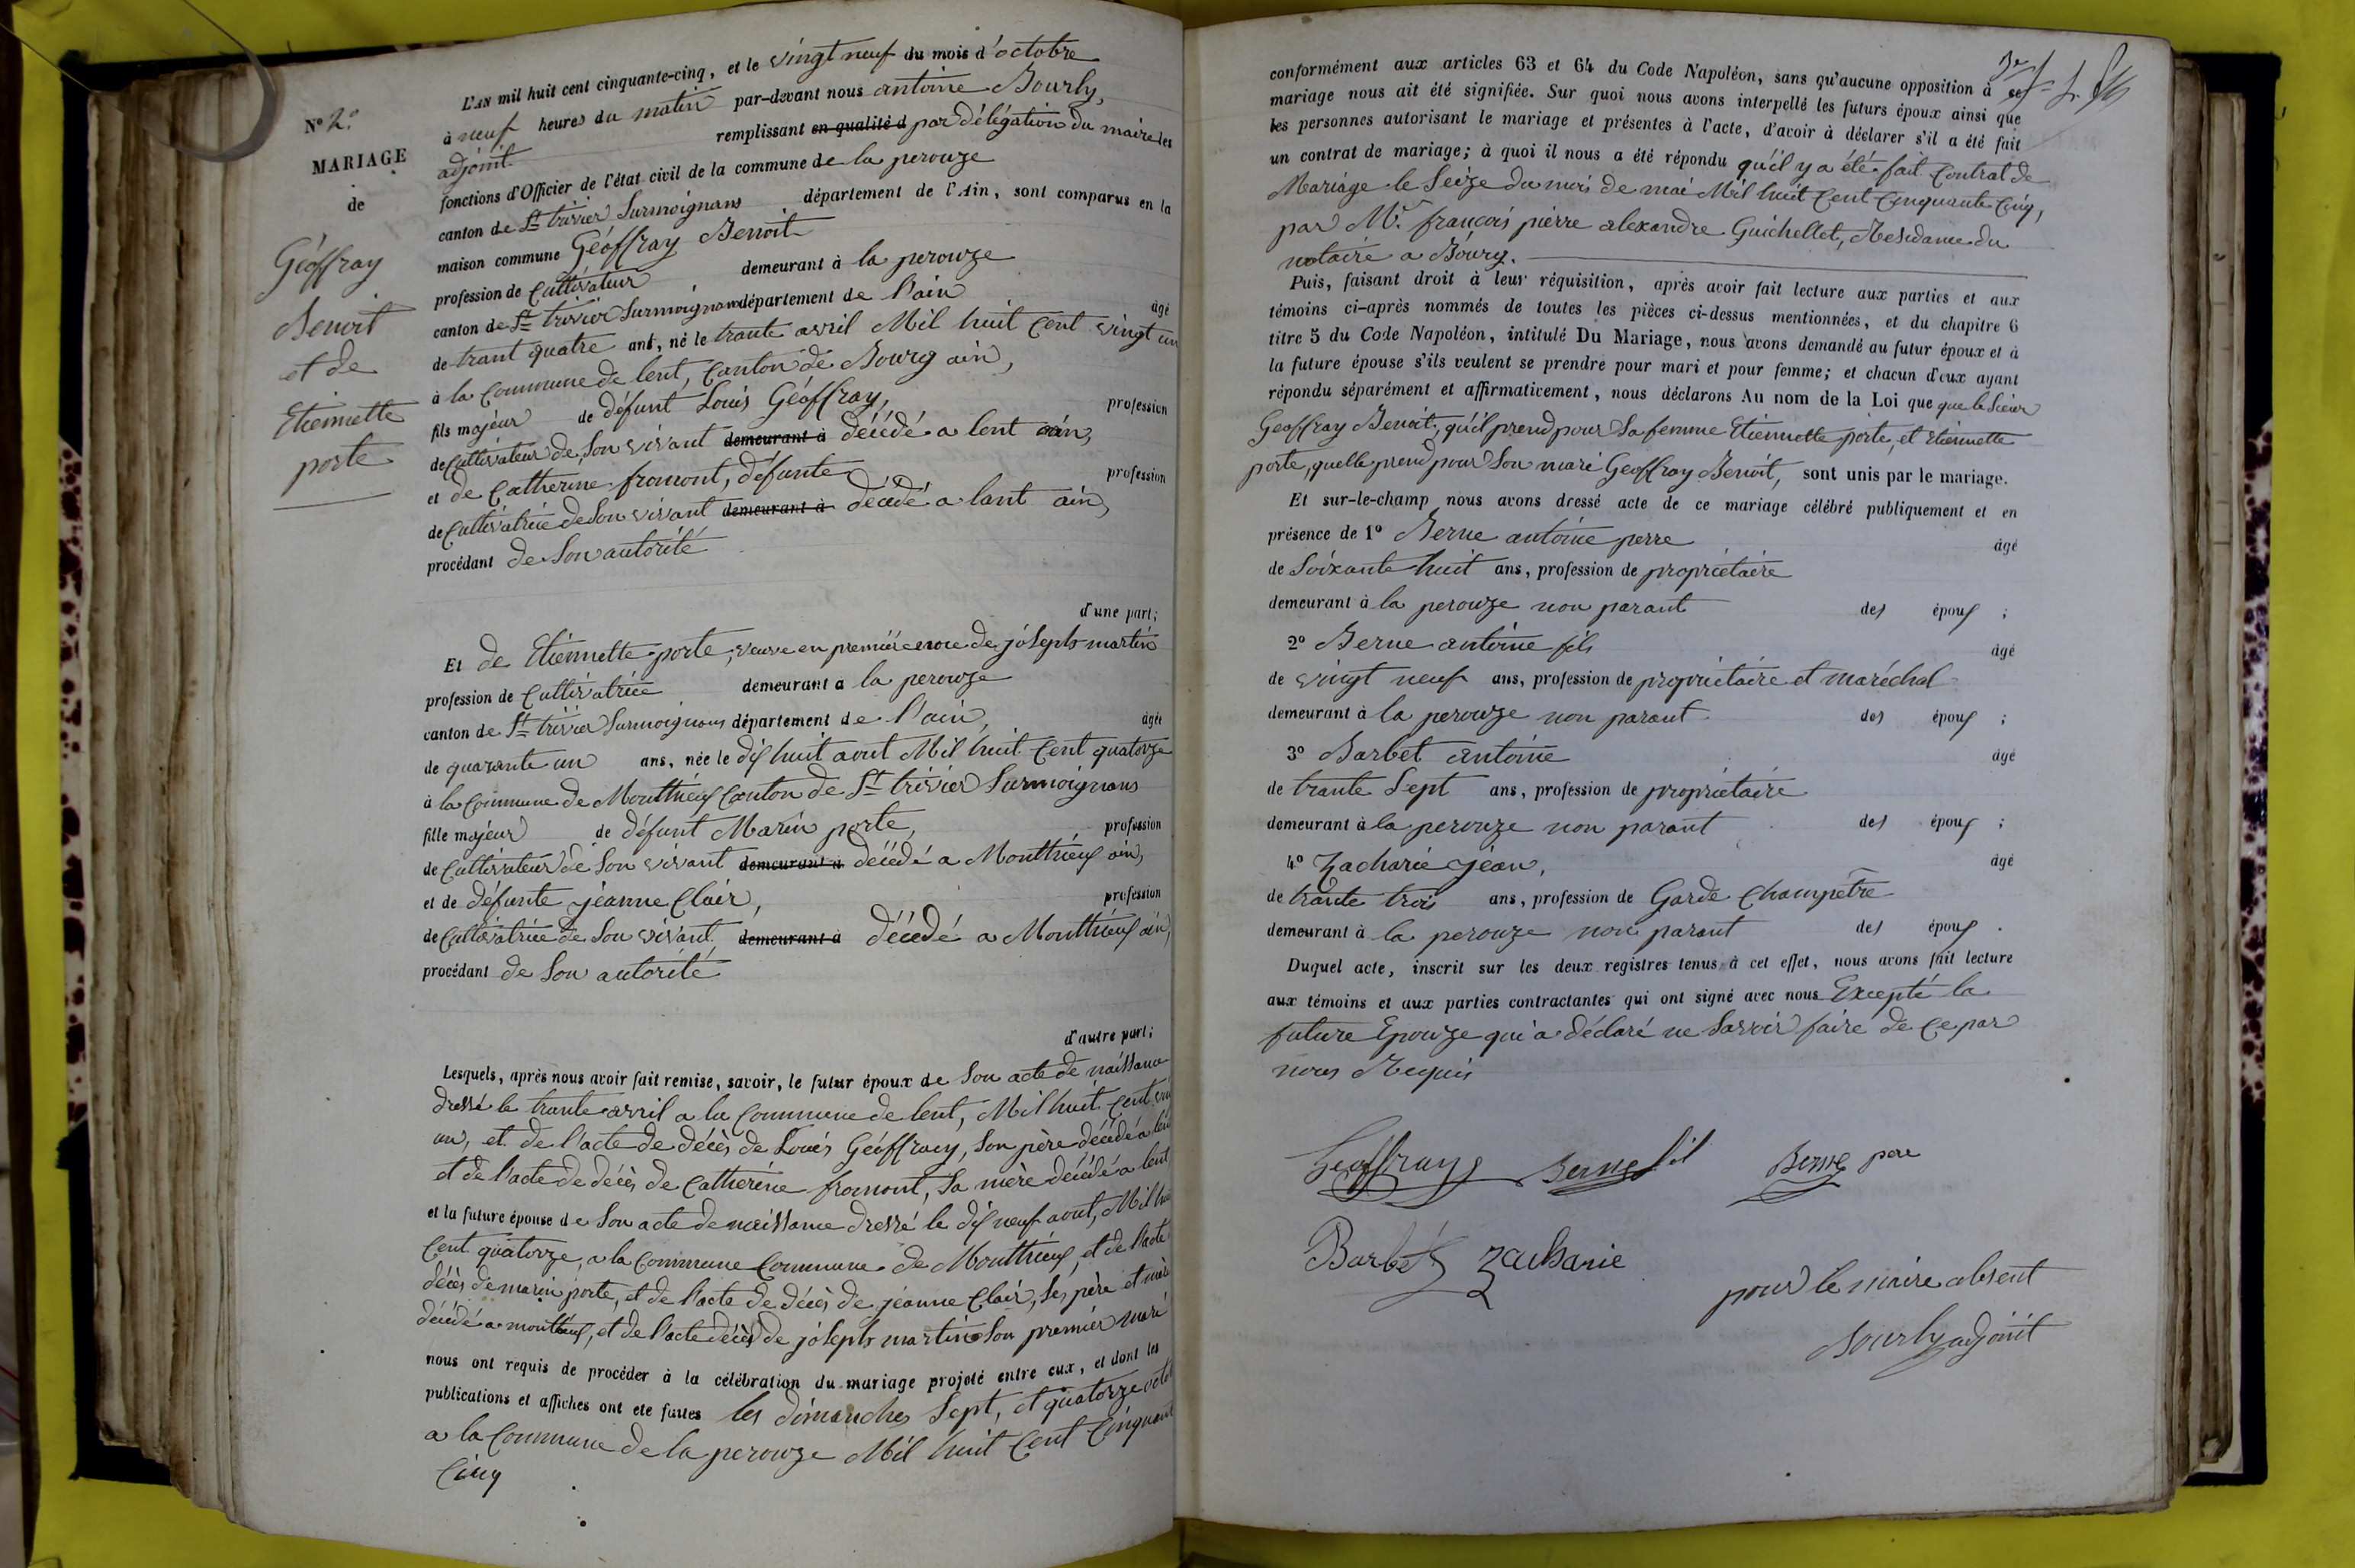 N° 2.°
MARIAGE
de
Géoffray
Benoit
et de
Etiennette
porte
L'AN mil huit cent cinquante-cinq, et le vingt neuf du mois d'octobre
à neuf heures du matin par-devant nous antoine Bourly,
adjoint remplissant en qualité d par délégation du maire les
fonctions d'Officier de l'état civil de la commune de la perouze
canton de St trivier Surmoignans département de l'Ain, sont comparus en la
maison commune Géoffray Benoit
profession de Cultivateur demeurant à la perouze
canton de St trivier Surmoignans département de l'ain âgé
de trant quatre ans, né le trante avril Mil huit Cent vingt un
à la Commune de lent, Canton de Bourg ain,
fils majeur de défunt Louis Géoffray, profession
de Cultivateur de Son vivant demeurant à décédé a lent ain,
et de Catherine fromont, défunte profession
de Cultivatrice de Son vivant demeurant à décédé a lant ain,
procédant de Son autorité
d'une part;
Et de Etiennette porte, veuve en première noce de joseph martin
profession de Cultivatrice demeurant a la perouze
canton de St trivier Surmoignans département de l'ain, âgée
de quarante un ans, née le dix huit aout Mil huit Cent quatorze
à la Commune de Monthieux Canton de St trivier Surmoignans
fille majeur de défunt Marin porte, profession
de Cultivateur de Son vivant demeurant à décédé a Monthieux ain,
et de défunte jéanne Clair, profession
de Cultivatrice de Son vivant, demeurant à décédé a Monthieux ain,
procédant de Son autorité
d'autre part;
Lesquels, après nous avoir fait remise, savoir, le futur époux de Son acte de naissance
dressé le trante avril a la Commune de lent, Mil huit Cent
un, et de l'acte de décès de Louis Géoffray, Son père décédé a
et de l'acte de décès de Catherine fromont, Sa mère décédé a lent
et la future épouse de Son acte de naissance dressé le dix neuf aout, Mil
Cent quatorze, a la Commune Commune de Monthieux, et de l'acte
décès de marin porte, et de l'acte de décès de jéanne Clair, Ses père et mère
décédé a monthieux, et de l'acte décès de joseph martin Son premier mari
nous ont requis de procéder à la célébration du mariage projeté entre eux, et dont les
publications et affiches ont été faites les dimanches Sept, et quatorze
a la Commune de la perouze Mil huit Cent Cinquante
Cinq
conformément aux articles 63 et 64 du Code Napoléon, sans qu'aucune opposition à ce
mariage nous ait été signifiée. Sur quoi nous avons interpellé les futurs époux ainsi que
les personnes autorisant le mariage et présentes à l'acte, d'avoir à déclarer s'il a été fait
un contrat de mariage; à quoi il nous a été répondu qu'il y a été fait Contrat de
Mariage le Seize du mois de mai Mil huit Cent Cinquante Cinq,
par Mr. françois pierre alexandre Guichellet, Residance du
notaire a Bourg.
Puis, faisant droit à leur réquisition, après avoir fait lecture aux parties et aux
témoins ci-après nommés de toutes les pièces ci-dessus mentionnées, et du chapitre 6
titre 5 du Code Napoléon, intitulé Du Mariage, nous avons demandé au futur époux et à
la future épouse s'ils veulent se prendre pour mari et pour femme; et chacun d'eux ayant
répondu séparément et affirmativement, nous déclarons Au nom de la Loi que que le Sieur
Geoffray Benoit, qu'il prend pour Sa femme Etiennette porte, et Etiennette
porte, quelle prend pour Son mari Geoffray Benoit, sont unis par le mariage.
Et sur-le-champ nous avons dressé acte de ce mariage célébré publiquement et en
présence de 1° Berne antoine perre âgé
de Soixante huit ans, profession de propriétaire
demeurant à la perouze non parant des époux ;
2° Berne antoine fils âgé
de vingt neuf ans, profession de propriétaire et maréchal
demeurant à la perouze non parant des époux ;
3° Barbet antoine âgé
de trante Sept ans, profession de propriétaire
demeurant à la perouze non parant des époux ;
4° Zacharie jéan, âgé
de trante trois ans, profession de Garde Champêtre
demeurant à la perouze non parant des époux .
Duquel acte, inscrit sur les deux registres tenus à cet effet, nous avons fait lecture
aux témoins et aux parties contractantes qui ont signé avec nous Excepté la
future Epouze qui a déclaré ne Savoir faire de Ce par
nous Requis
Geoffray Berne fil Berne pere
Barbet Zacharie
pour le maire absent
Bourly adjoint